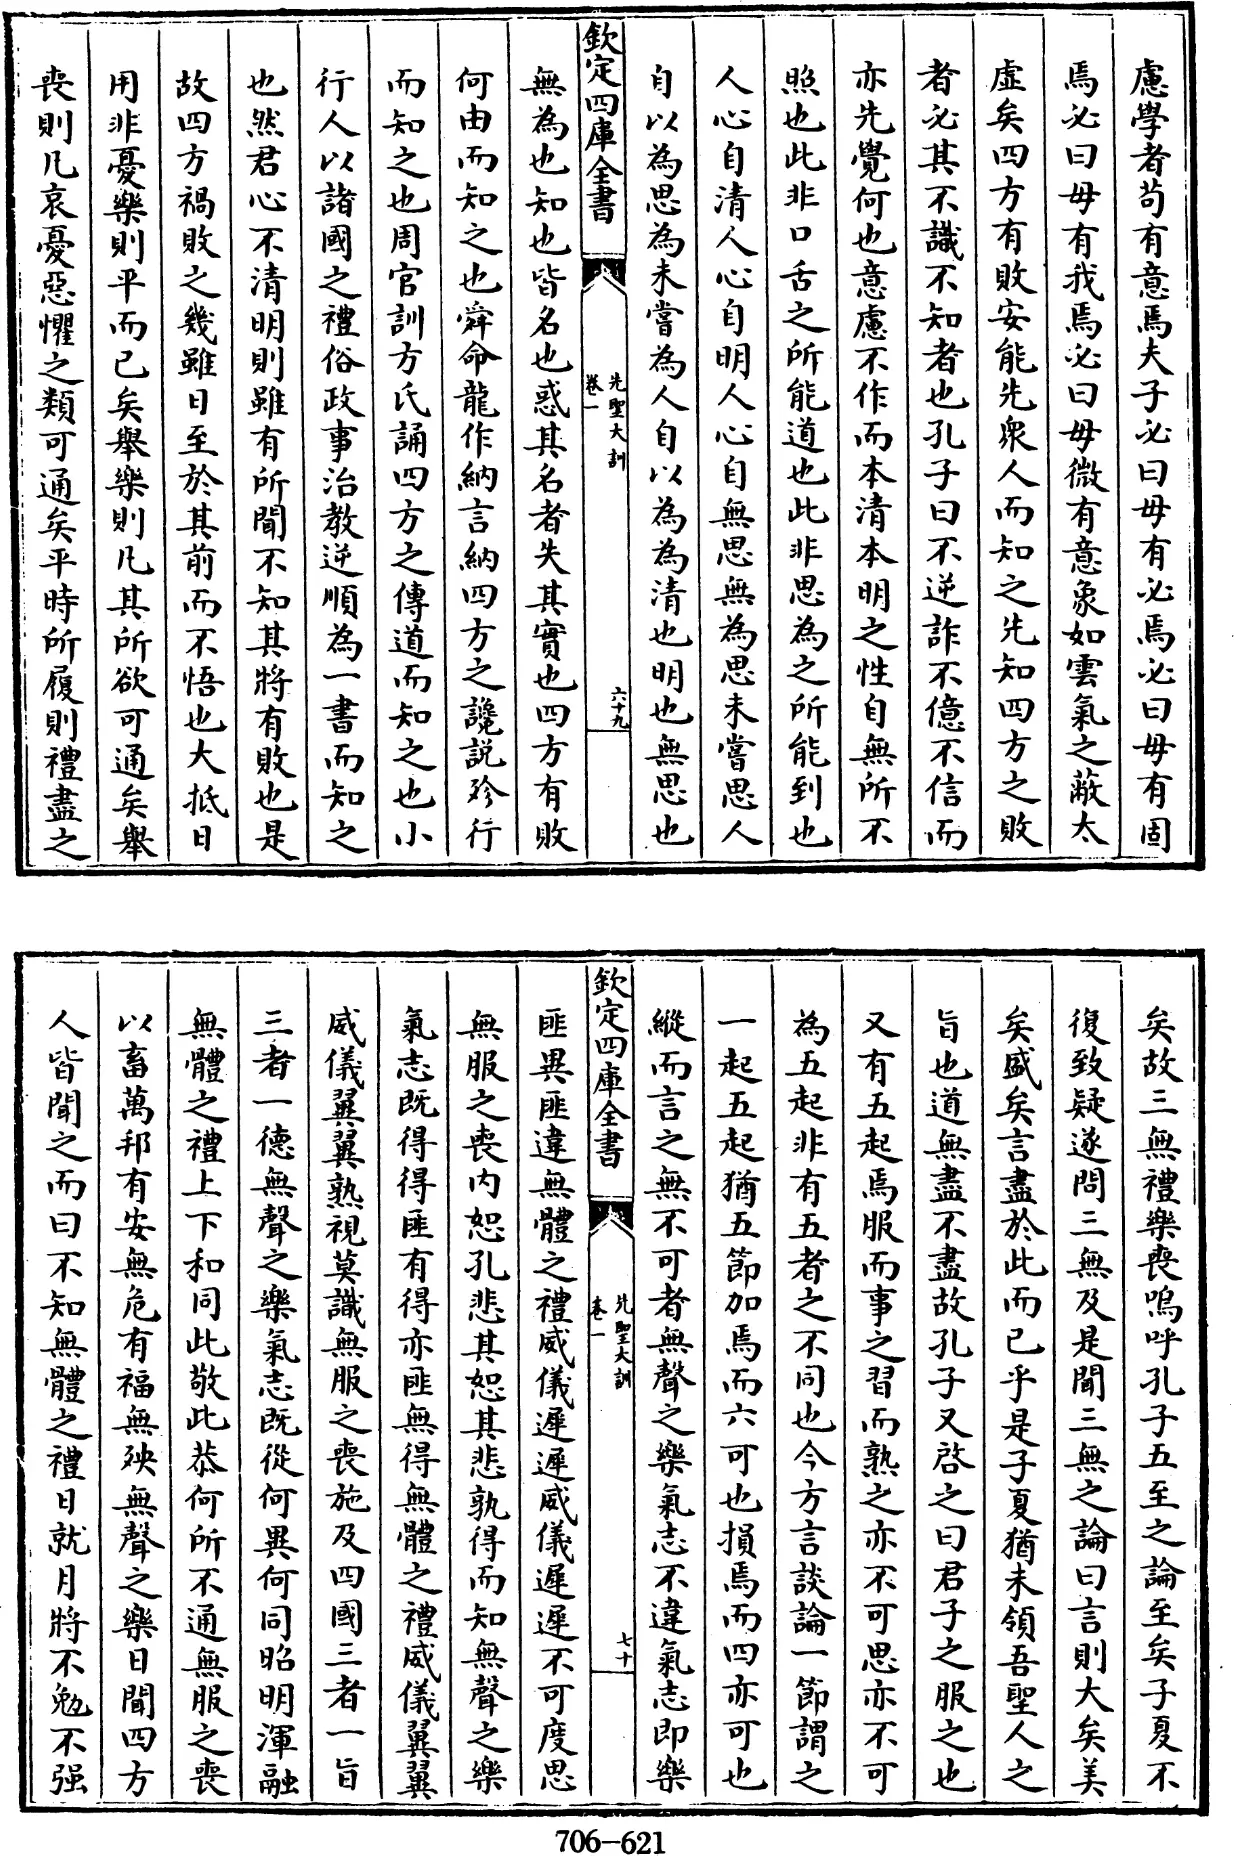 慮學者苟有意焉夫子必曰毋有必焉必曰毋有固
焉必曰毋有我焉必曰毋微有意象如雲氣之蔽太
虛矣四方有敗安能先衆人而知之先知四方之敗
者必其不識不知者也孔子曰不逆詐不億不信而
亦先覺何也意慮不作而本清本明之性自無所不
照也此非口舌之所能道也此非思為之所能到也
人心自清人心自明人心自無思無為思未嘗思人
自以為思為未嘗為人自以為為清也明也無思也
欽定四庫全書
先聖大訓
卷一
六十九
無為也知也皆名也惑其名者失其實也四方有敗
何由而知之也舜命龍作納言納四方之讒說殄行
而知之也周官訓方氏誦四方之傳道而知之也小
行人以諸國之禮俗政事治教逆順為一書而知之
也然君心不清明則雖有所聞不知其將有敗也是
故四方禍敗之幾雖日至於其前而不悟也大抵日
用非憂樂則平而已矣舉樂則凡其所欲可通矣舉
喪則凡哀憂惡懼之類可通矣平時所履則禮盡之
矣故三無禮樂喪嗚呼孔子五至之論至矣子夏不
復致疑遂問三無及是聞三無之論曰言則大矣美
矣盛矣言盡於此而已乎是子夏猶未領吾聖人之
旨也道無盡不盡故孔子又啓之曰君子之服之也
又有五起焉服而事之習而熟之亦不可思亦不可
為五起非有五者之不同也今方言談論一節謂之
一起五起猶五節加焉而六可也損焉而四亦可也
縱而言之無不可者無聲之樂氣志不違氣志即樂
欽定四庫全書
先聖大訓
卷一
七十
匪異匪違無體之禮威儀遲遲威儀遲遲不可度思
無服之喪内恕孔悲其恕其悲孰得而知無聲之樂
氣志既得得匪有得亦匪無得無體之禮威儀翼翼
威儀翼翼熟視莫識無服之喪施及四國三者一旨
三者一德無聲之樂氣志既從何異何同昭明渾融
無體之禮上下和同此敬此恭何所不通無服之喪
以畜萬邦有安無危有福無殃無聲之樂日聞四方
人皆聞之而曰不知無體之禮日就月將不勉不强
706-621